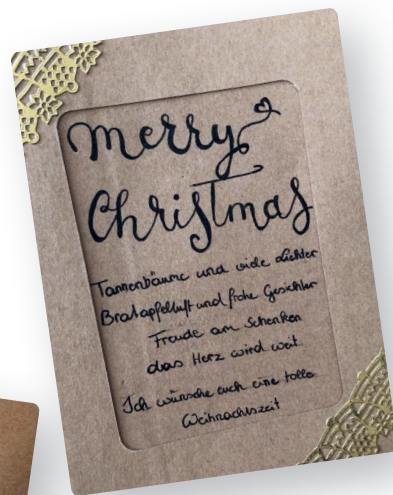 Merry
Christmas
Tannenbäume und viele Lichter
Bratapfelduft und frohe Gesichter
Freude am Schenken
das Herz wird weit
Ich wünsche euch eine tolle
Weihnachtszeit